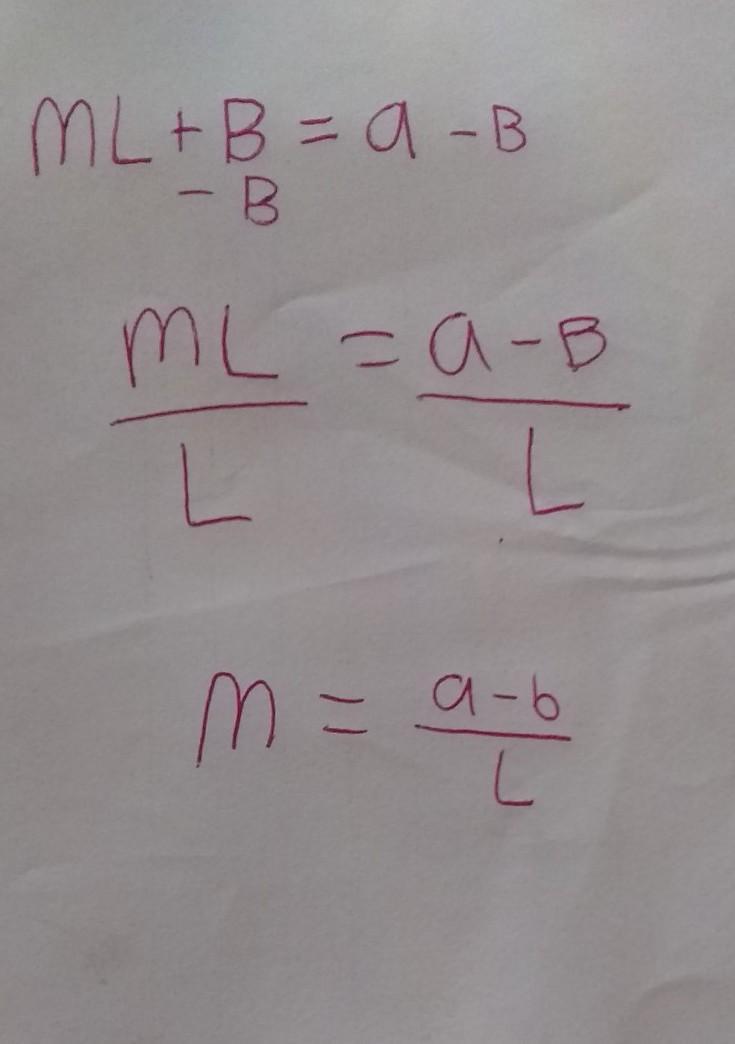 mL + B = a - B
- B
mL = a - B
L L
m = a - b
L